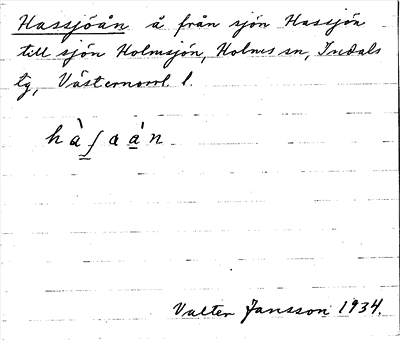 Hassjöån å från sjön Hassjön
till sjön Holmsjön, Holms sn, Indals
tg, Västernorrl. l.
hàʃaa̍n
Valter Jansson 1934.